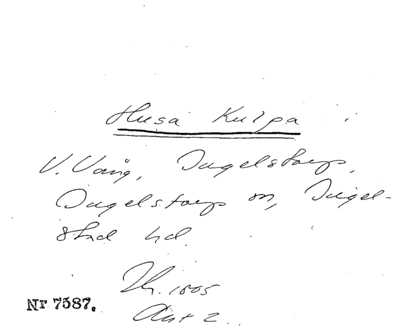 Husa Kulpa
V. Vång, Ingelstorps,
Ingelstorps sn, Ingel-
stad hd.
1805
Nr 7587.
2